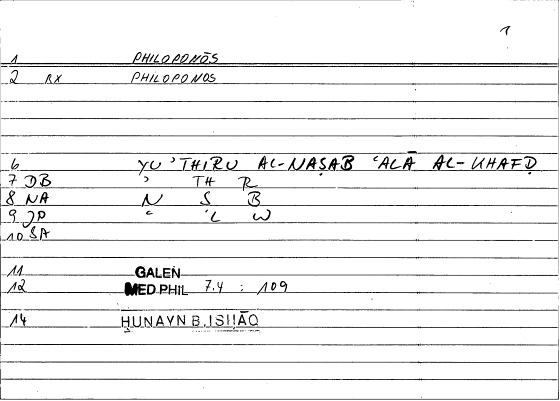 1
1 PHILOPONŌS
2 RX PHILOPONOS
6 YU'THIRU AL-NAṢAB 'ALĀ AL-KHAFḌ
7 DB ' TH R
8 NA N Ṣ B
9 JP ʿ ʿL W
10 SA
11 GALEN
12 MED PHIL 7.4 : 109
14 ḤUNAYN B. ISḤĀQ